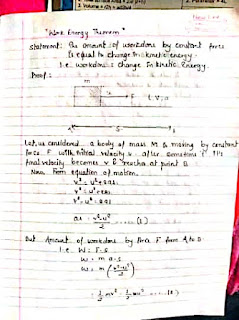 "Work Energy Theorem"
Statement: The amount of workdone by constant force
is equal to change in kinetic energy
i.e. workdone = change in kinetic energy.
Proof:
m
F
S
Let, us considered a body of mass M is moving by constant
force F with initial velocity u after sometime 't' it's
final velocity becomes v & reaches at point B
Now, From equation of motion.
v² = u² + 2as
v² - u² = 2as
as = v² - u² / 2 ..... (1)
But Amount of workdone by force F from A to B
i.e. W = F·S
W = m a·s
W = m (v² - u² / 2)
= 1/2 mv² - 1/2 mu² ..... (2)